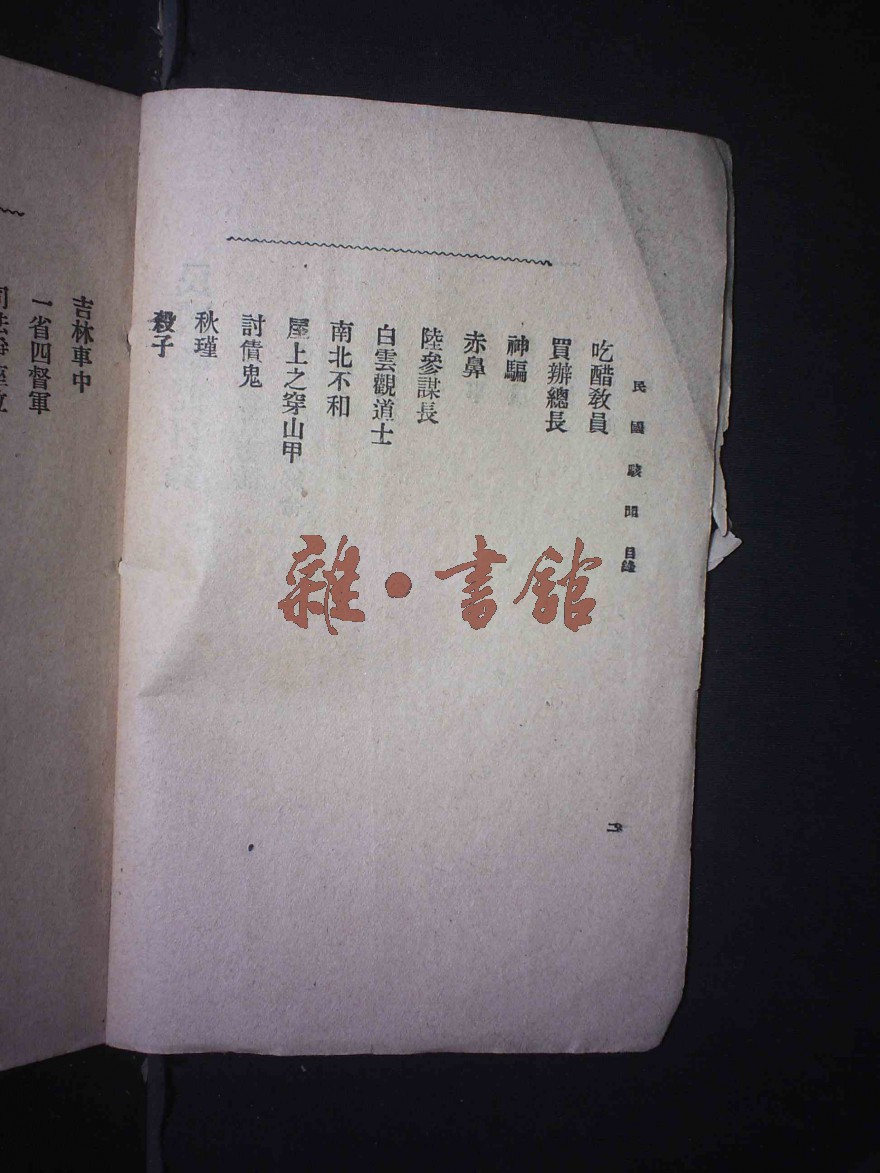 民國駭聞 目錄
吃醋教員
買辦總長
神騙
赤鼻
陸參謀長
白雲觀道士
南北不和
屋上之穿山甲
討債鬼
秋瑾
殺子
吉林車中
一省四督軍
雜·書館